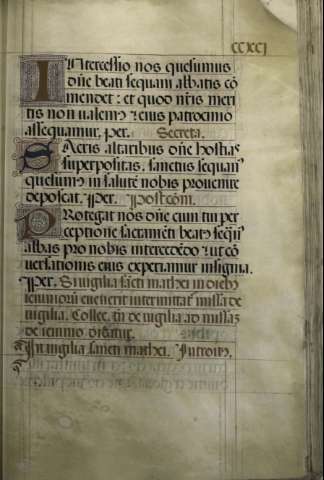 ccxcj
Intercessio nos quesumus
dñe beati sequani abbatis cō
mendet: et quod nr̄is meri
tis non ualemꝰ eius patrocinio
assequamur. per. Secreta.
Sacris altaribus dñe hostias
superpositas. sanctus sequanꝰ
quesumꝰ in salutē nobis prouenire
deposcat. Per. Postcōm.
Protegat nos dñe cum tui per
ceptione sacramēti beatꝰ
abbas pro nobis intercedēdo ut cō
uersationis eius experiamur insignia.
Per. Si uigilia sācti mathei in
ieiuniorū euenerit missa de
uigilia. Collec. de uigilia ad missaȝ
de ieiunio dicatur.
In uigilia sancti mathei. Introitꝰ.